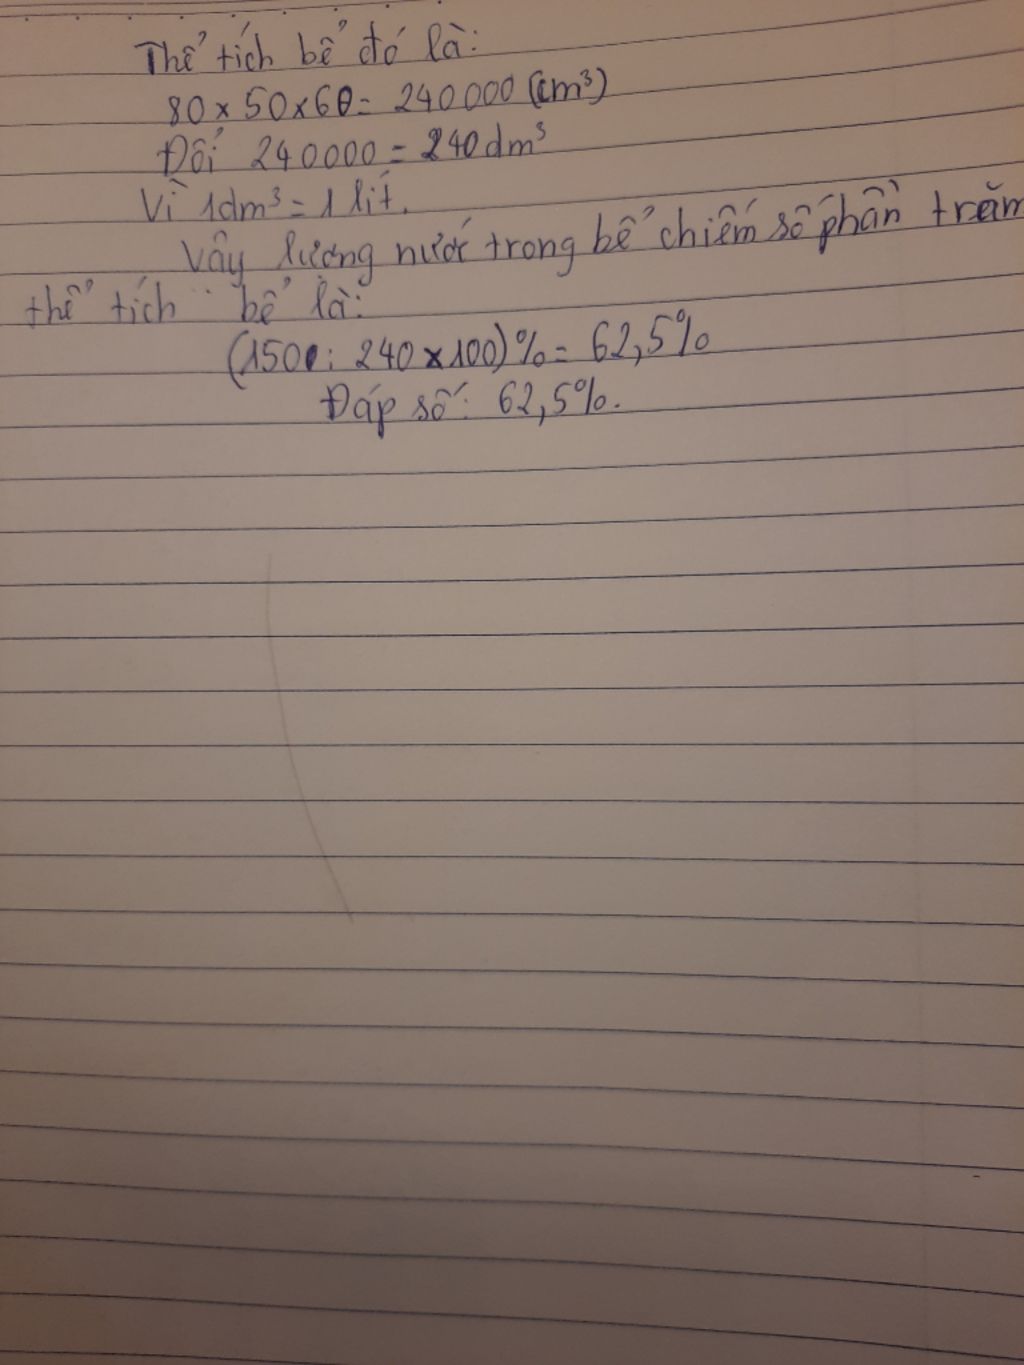 Thể tích bể đó là:
80 x 50 x 60 = 240 000 (cm³)
Đổi 240000 = 240 dm³
Vì 1dm³ = 1 lít.
Vậy lượng nước trong bể chiếm số phần trăm
thể tích bể là:
(150 : 240 x 100) % = 62,5%
Đáp số: 62,5%.